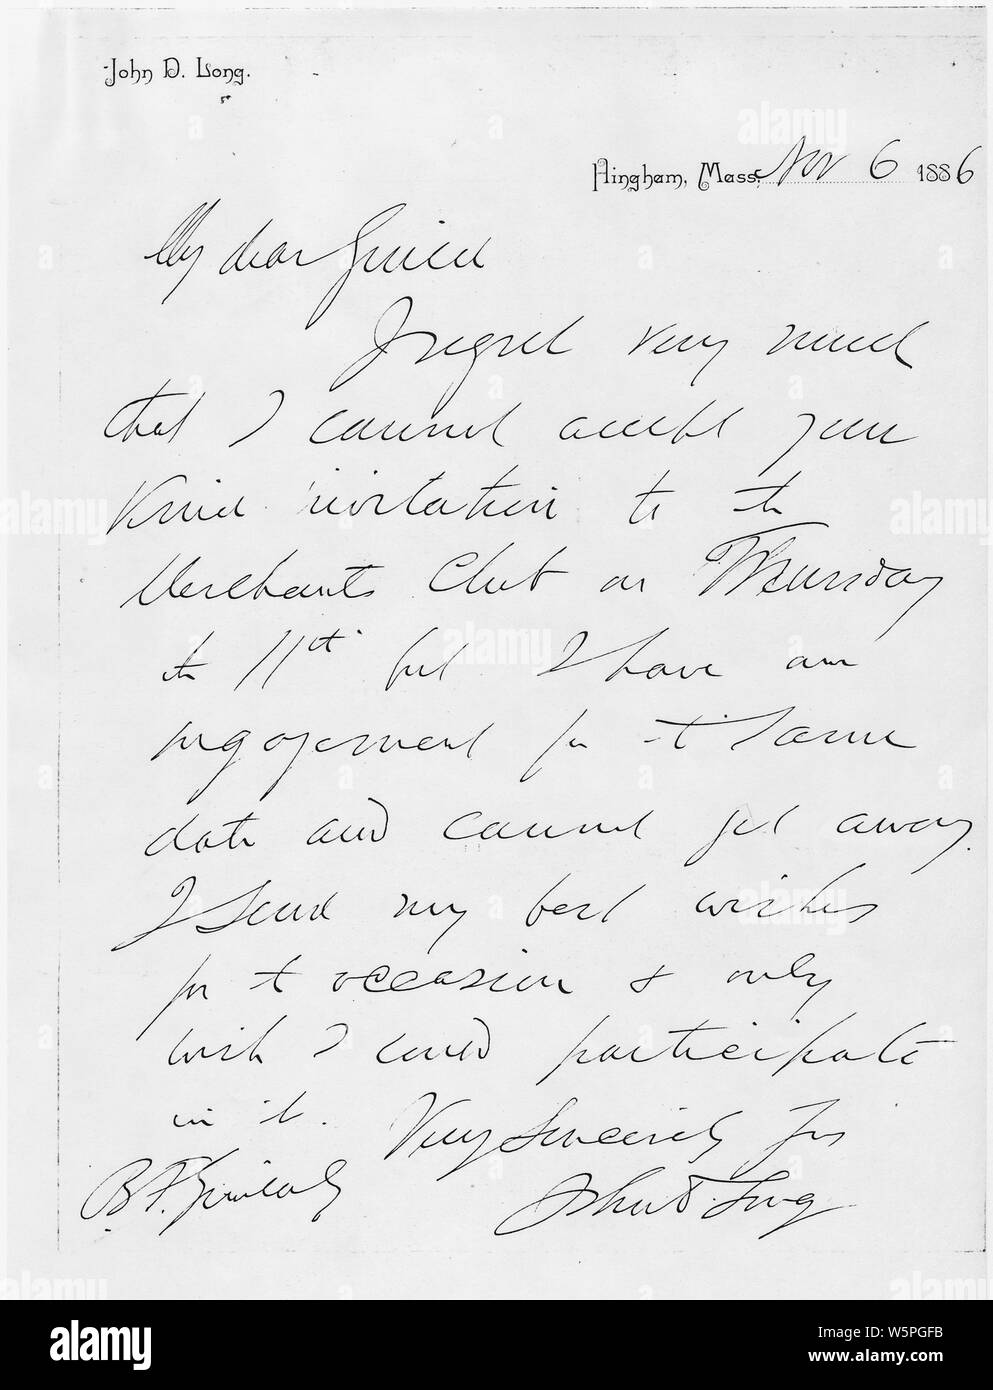 John D. Long.
Hingham, Mass. Nov 6 1886
My dear Guild
I regret very much
that I cannot accept your
kind invitation to the
Merchants Club on Thursday
the 11th but I have an
engagement for t same
date and cannot get away.
I send my best wishes
for t occasion & only
wish I could participate
in it. Very Sincerely Yrs
B.F. John D. Long
alamy
Image ID: W5PGFB
www.alamy.com